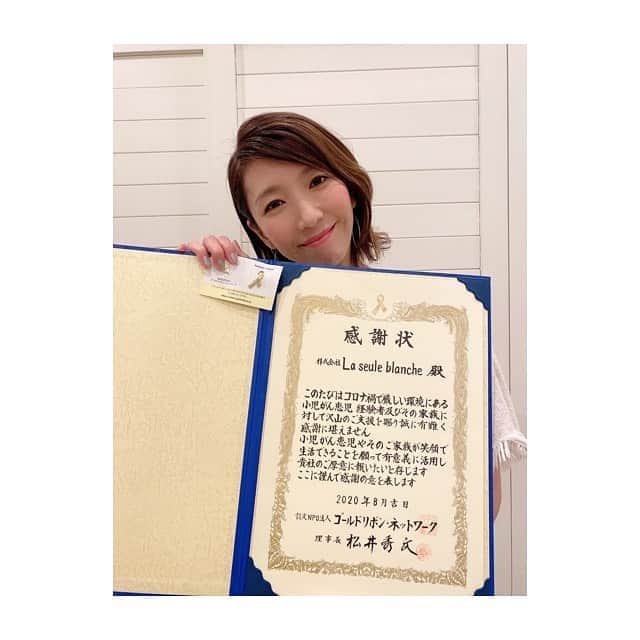 感謝状
株式会社 La seule blanche 殿
このたびはコロナ禍で厳しい環境にある
小児がん患児 経験者及びその家族に
対して沢山のご支援を賜り誠に有難く
感謝に堪えません
小児がん患児やそのご家族が笑顔で
生活できることを願って有意義に活用し
貴社のご厚意に報いたいと存じます
ここに謹んで感謝の意を表します
2020年8月吉日
認定NPO法人 ゴールドリボン・ネットワーク
理事長 松井秀文